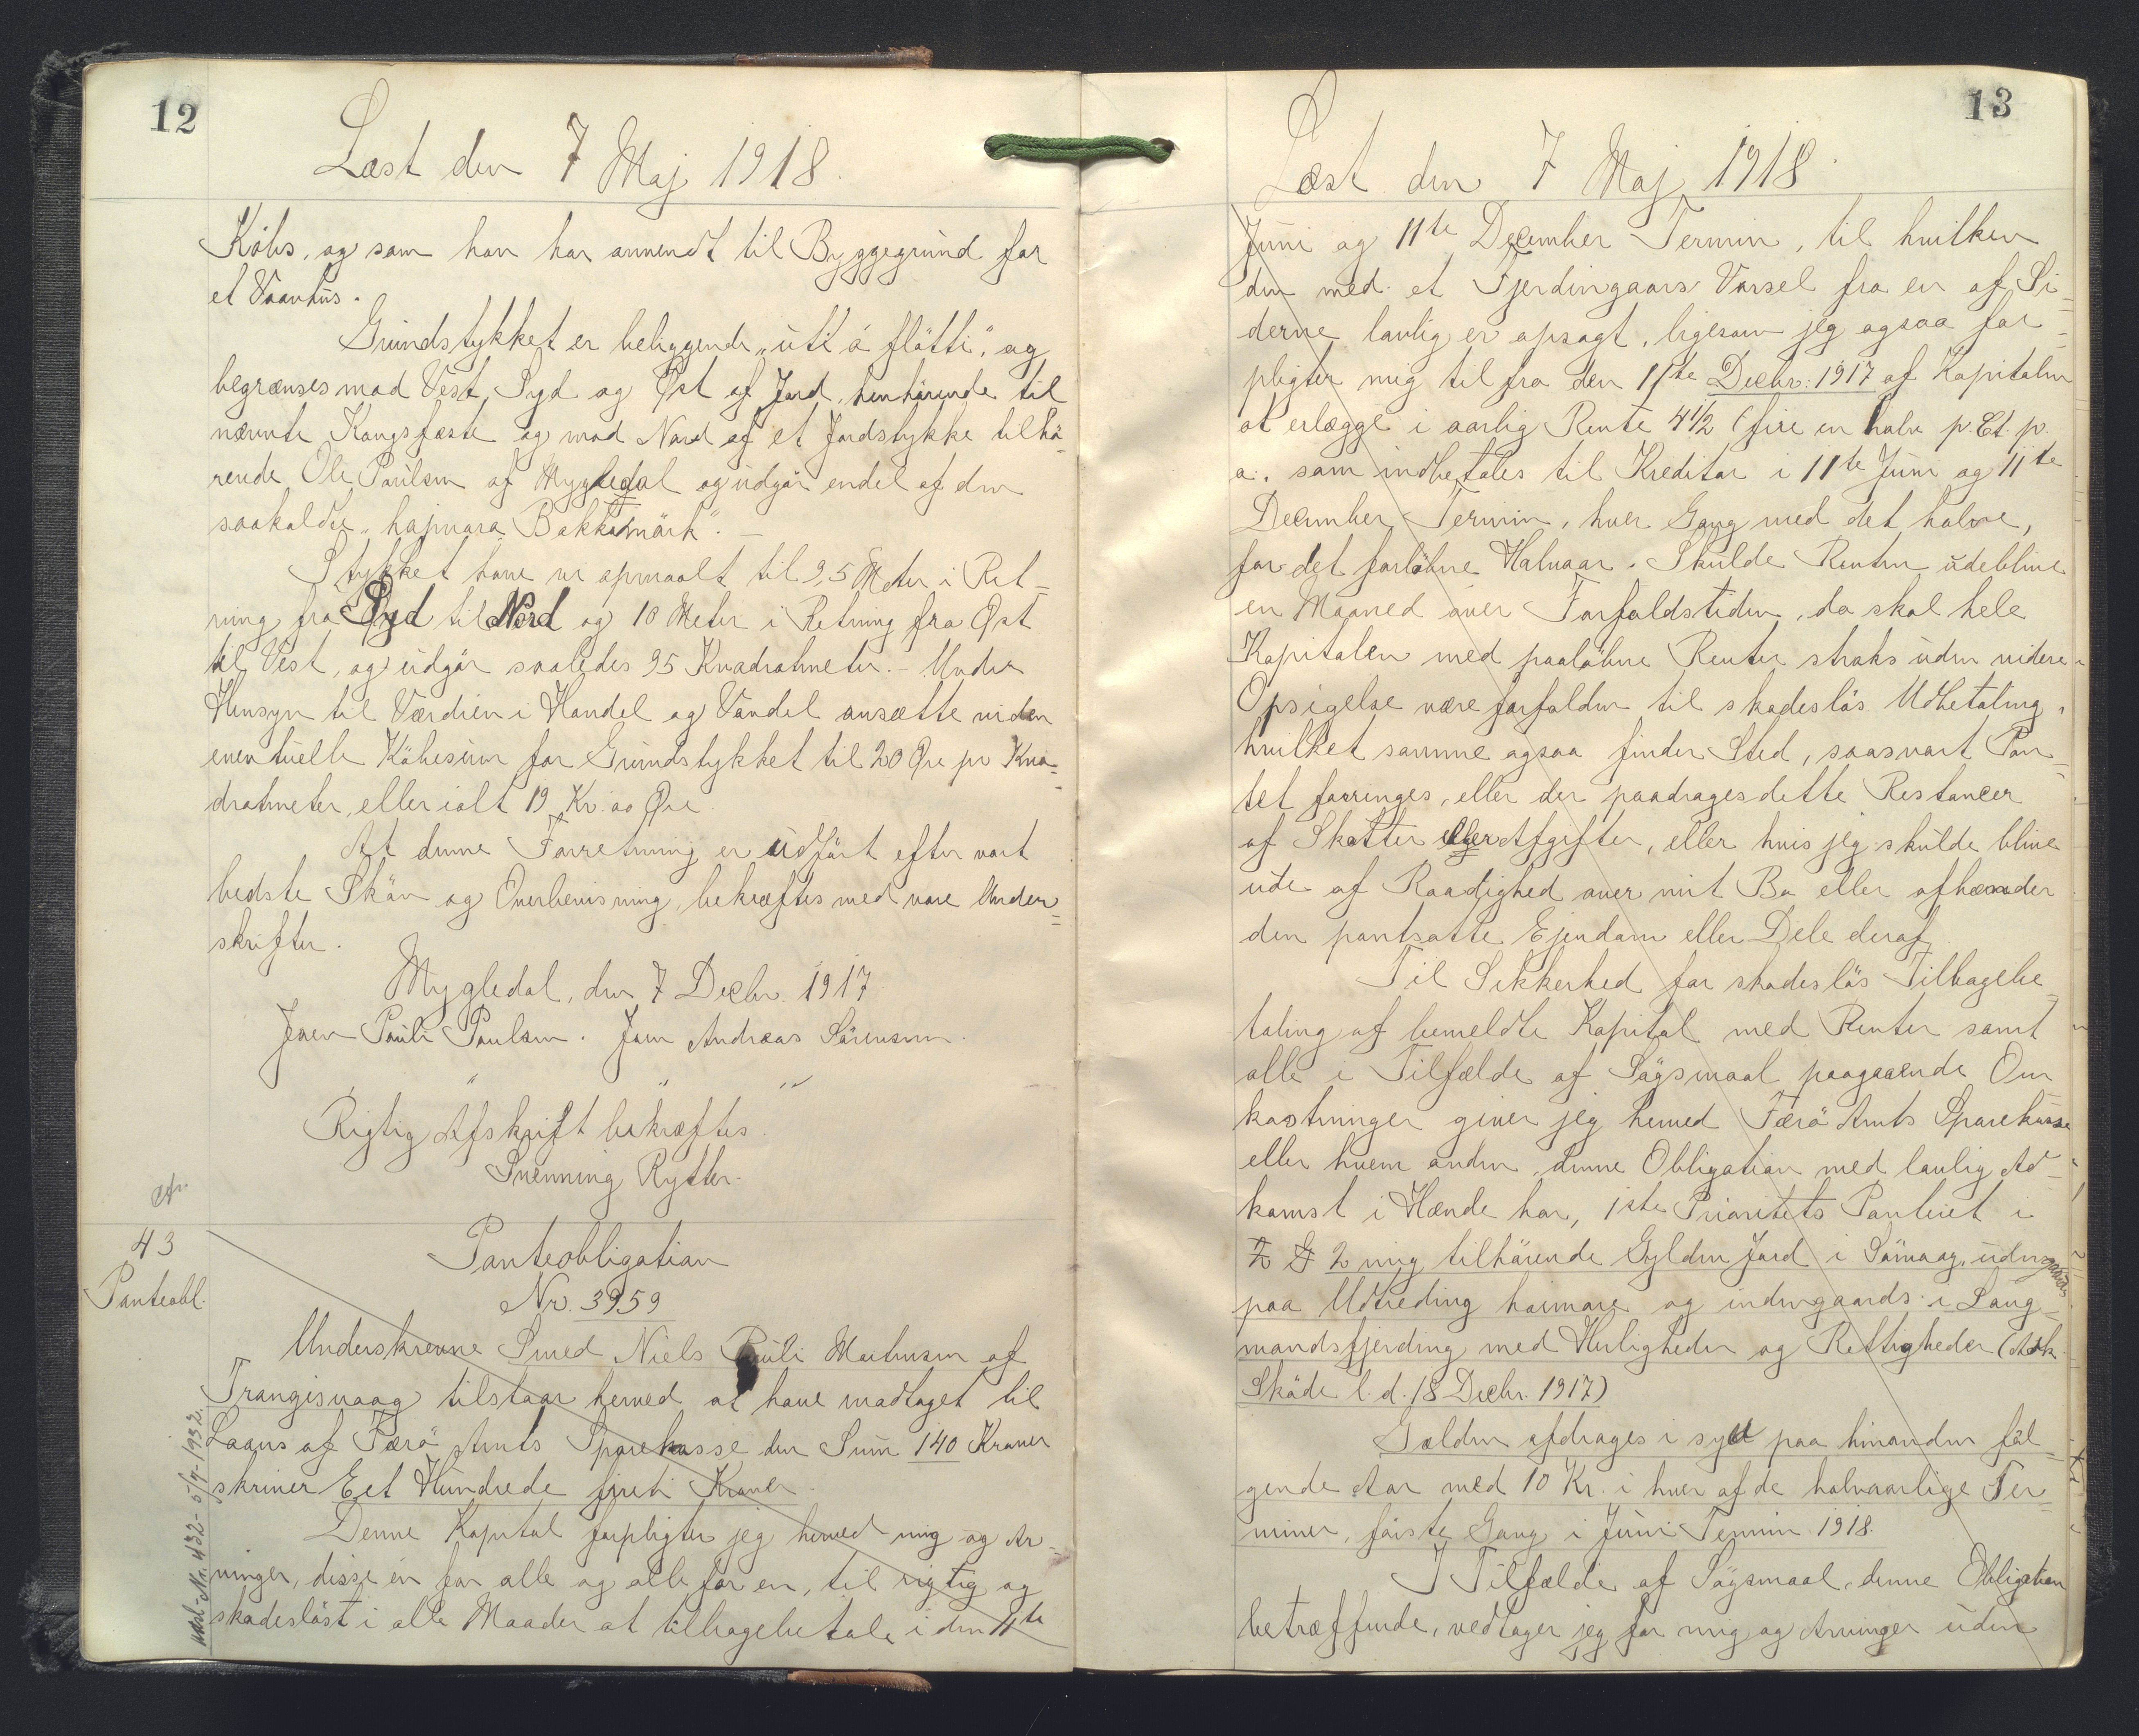 12
Læst den 7 Maj 1918.
Köbs, og som han har anvendt til Byggegrund for
et Vaanhus.
Grundstykket er beliggende "úti á fløtti", og
begrænses mod Vest, Syd og Øst af Jord, henhörende til
nævnte Kongsfæste og mod Nord af et Jordstykke tilhö-
rende Ole Paulsen af Mygledal og udgör endel af den
saakaldte
Stykket have vi opmaalt til 9,5 Meter i Ret-
ning fra Syd til Nord og 10 Meter i Retning fra Øst
til Vest, og udgör saaledes 95 Kvadratmeter. - Under
Hensyn til Værdien i Handel og Vandel ansætte vi den
eventuelle Köbesum for Grundstykket til 20 Øre pr Kva-
dratmeter, eller ialt 19 Kr. 00 Øre
At denne Forretning er udfört efter vort
bedste Skön og Overbevisning, bekræftes med vore Under-
skrifter.
Mygledal, den 7 Decbr. 1917
Joen Pauli Poulsen. Joen Andreas Sörensen.
Rigtig Afskrift bekræftes.
Svenning Rytter.
43
Panteobl.
Panteobligation
No. 3959
Underskrevne Smed Niels Pauli Mortensen af
Trangisvaag tilstaar herved at have modtaget til
Laans af Færö Amts Sparekasse den Sum 140 Kroner
skriver Eet Hundrede fireti Kroner.
Denne Kapital forpligter jeg herved mig og Ar-
vinger, disse én for alle og alle for en, til rigtig og
skadeslöst i alle Maader at tilbagebetale i den 11te
udsl. Nr. 432 - 5/7-1932.
13
Læst den 7 Maj 1918.
Juni og 11te December Termin, til hvilken
den med et Fjerdingaars Varsel fra en af Si-
derne lovlig er opsagt, ligesom jeg ogsaa for-
pligter mig til fra den 11te Decbr. 1917 af Kapitalen
at erlægge i aarlig Rente 4½ (fire en halv p. Ct. p.
a., som indbetales til Kreditor i 11te Juni og 11te
December Termin, hver Gang med det halve,
for det forløbne Halvaar. Skulde Renten udeblive
en Maaned over Forfaldstiden, da skal hele
Kapitalen med paaløbne Renter straks uden videre
Opsigelse være forfalden til skadeslös Udbetaling,
hvilket samme ogsaa finder Sted, saasnart Pan-
tet forringes, eller der paadrages dette Restancer
af Skatter eller Afgifter, eller hvis jeg skulde blive
ude af Raadighed over mit Bo eller afhænder
den pantsatte Ejendom eller Dele deraf.
Til Sikkerhed for skadeslös Tilbagebe-
taling af bemeldte Kapital med Renter samt
alle i Tilfælde af Sögsmaal paagaaende Om-
kostninger giver jeg herved Færö Amts Sparekasse
eller hvem anden, denne Obligation med lovlig Ad-
komst i Hænde har, 1ste Prioritets Panteret i
2 mig tilhörende Gylden Jord i Sömaag, udengaards
paa Udtreding haimara og indengaards i Laug-
mandsfjerding med Herligheder og Rettigheder (Adk.
Sköde l. d. 18 Decbr. 1917)
Gælden afdrages i syv paa hinanden föl-
gende Aar med 10 Kr. i hver af de halvaarlige Ter-
miner, förste Gang i Juni Termin 1918.
I Tilfælde af Sögsmaal, denne Obligation
betræffende, vedtager jeg for mig og Arvinger uden